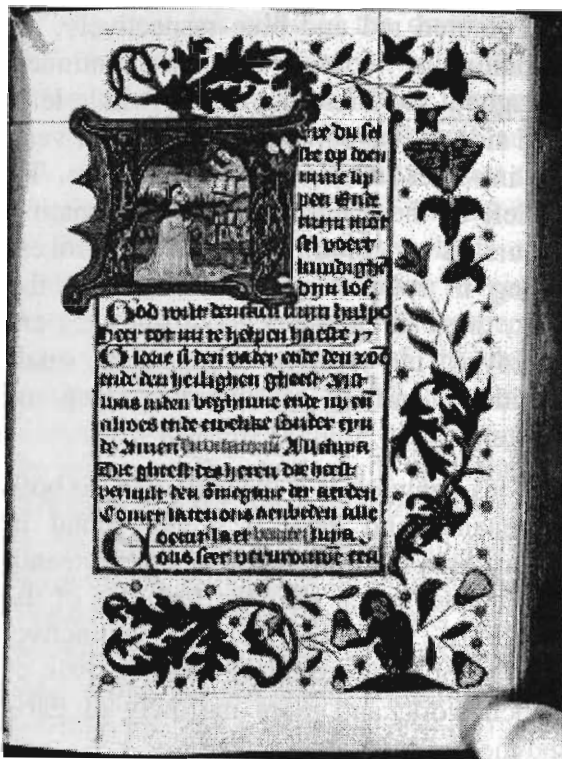 ere du sel
ste op doen
mine lip
pen Ende
mijn mōt
sel voert
kundighē
dijn lof.
God wilt dencken in mijn hulpe
heer tot mi te helpen haeste
Glorie si den vader ende den zoē
ende den heilighen gheest Als
was inden beghinne ende nv eñ
altoes ende ewelike sonder eyn
de Amen Alleluya
Die gheest des heren die heeft
veruult den ōmeganc der aerden
Comet laten ons aenbeden alle
Coemt laet
ons seer verurouwē